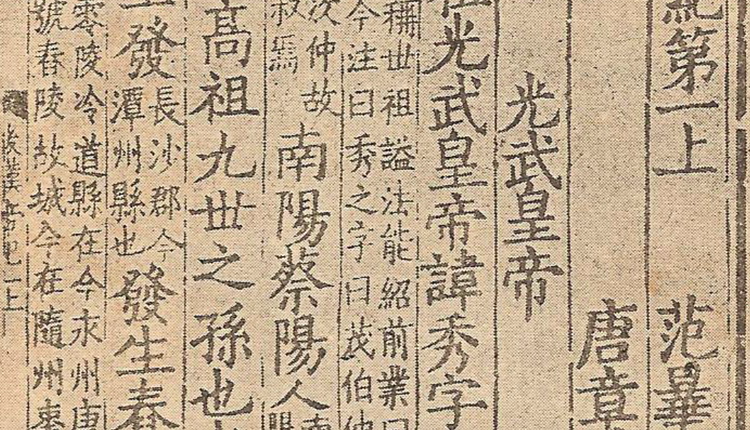 紀第一上 范曄
唐章
光武皇帝
光武皇帝諱秀字
稱世祖謚法能紹前業曰
今注曰秀之字曰茂伯仲
次仲故
叔
南陽蔡陽人
高祖九世之孫也
發
長沙郡今
潭州縣也
發生舂
零陵冷道縣在今永州唐
號舂陵故城今在隨州棗
後漢書紀一上